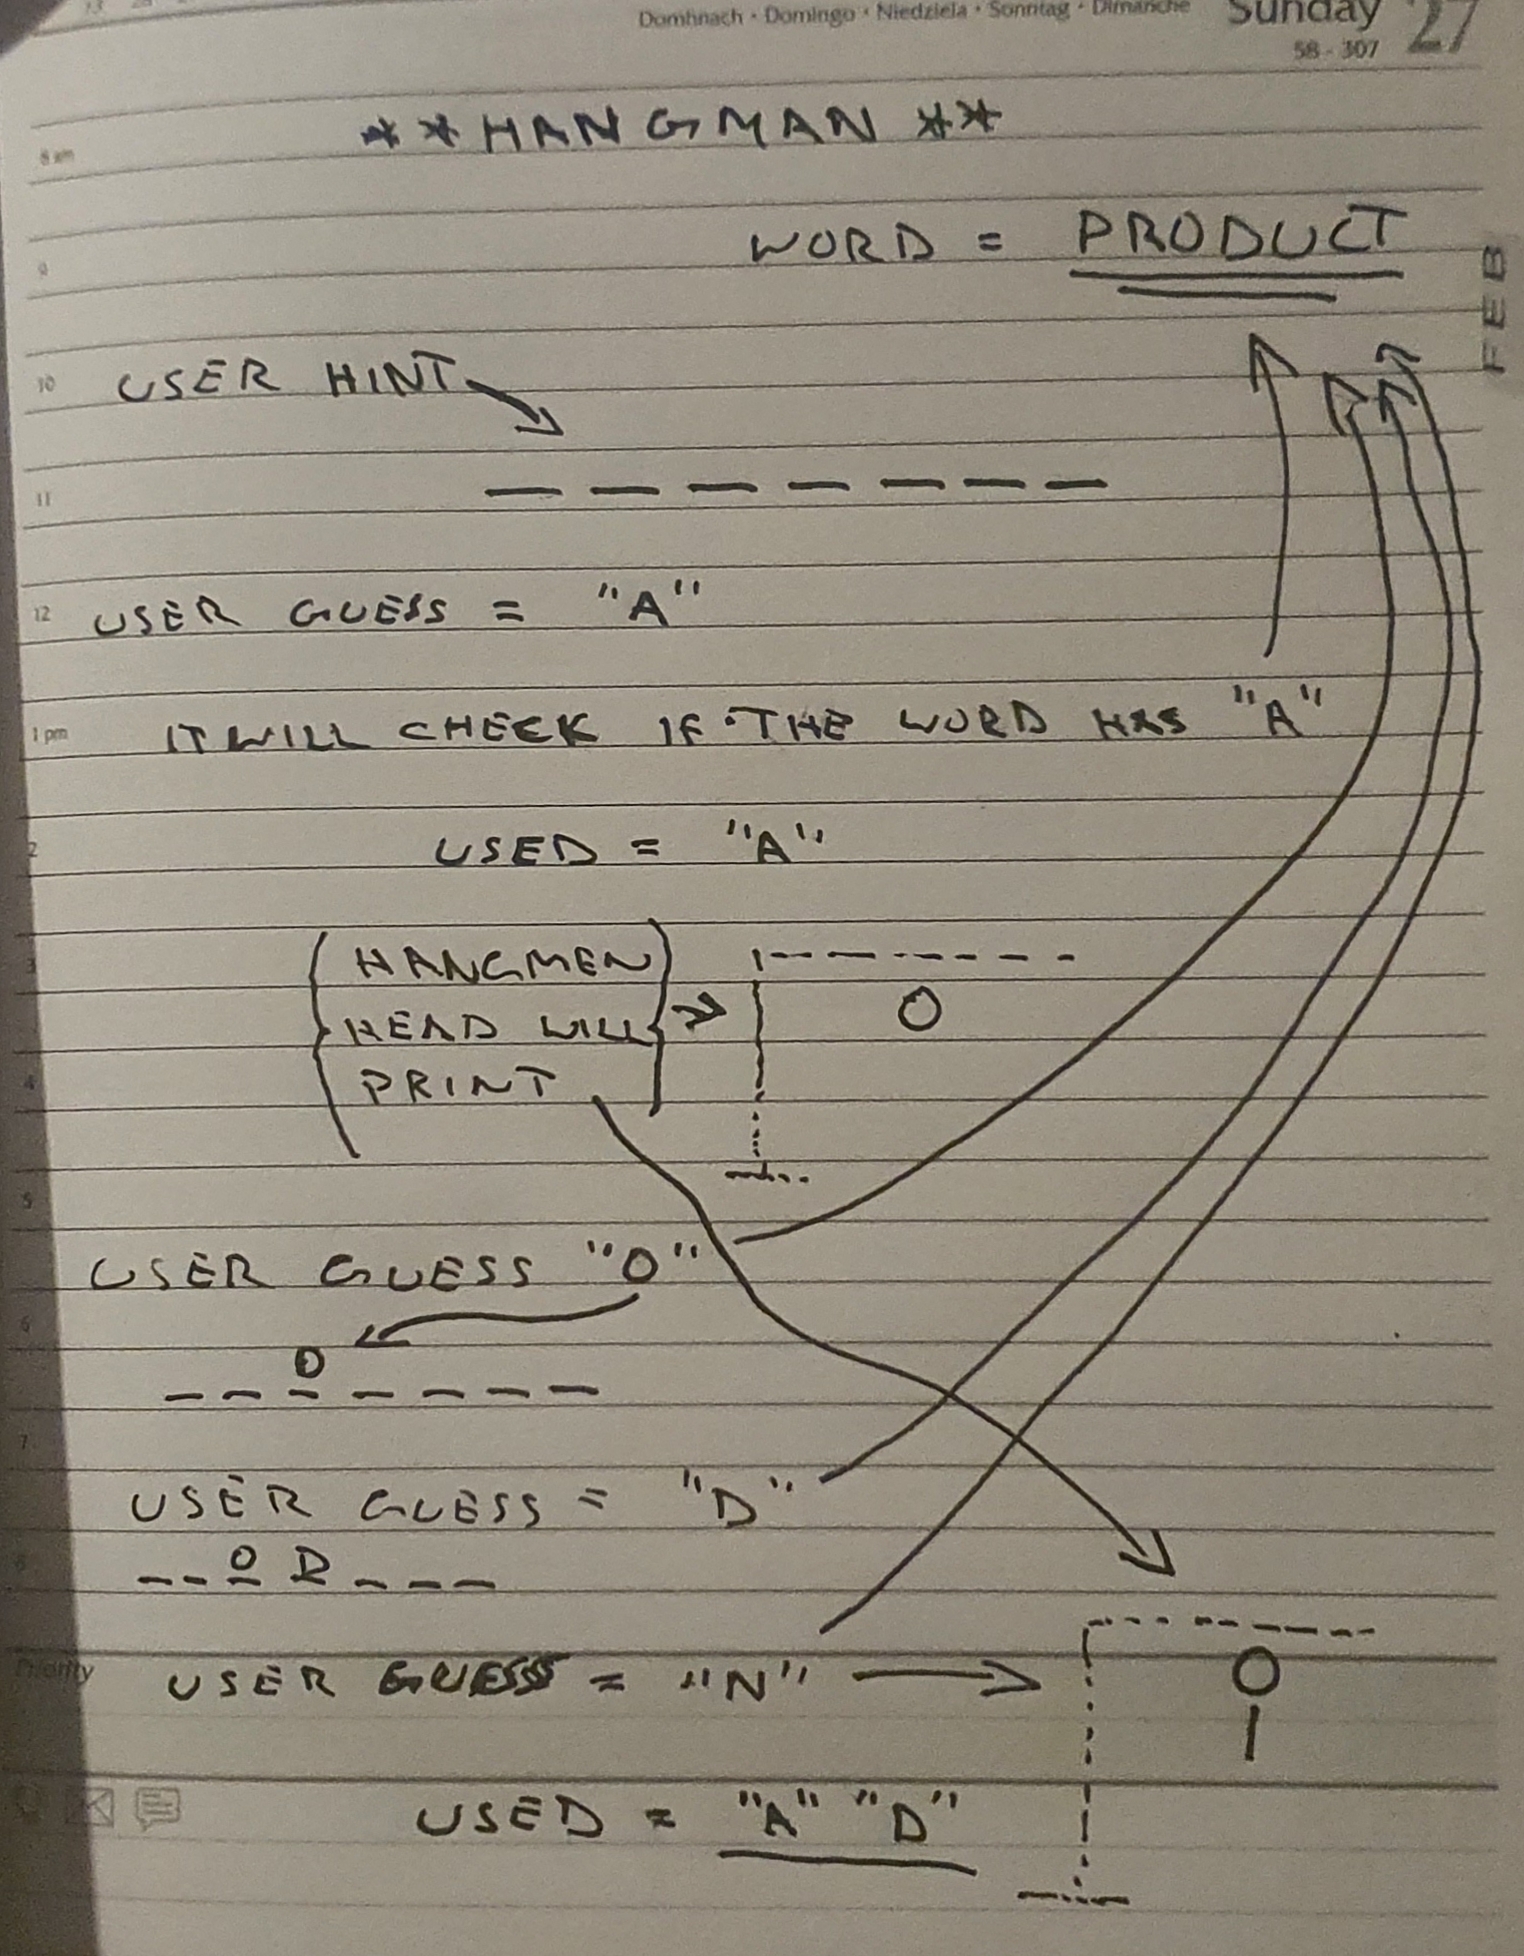 Domhnach • Domingo • Niedziela • Sonntag • Dimanche Sunday 27
58 - 307
** HANGMAN **
8 am
WORD = PRODUCT
9
FEB
10 USER HINT
11 _ _ _ _ _ _ _
12 USER GUESS = "A"
1 pm IT WILL CHECK IF THE WORD HAS "A"
2 USED = "A"
3 HANGMEN
HEAD WILL
4 PRINT
5
USER GUESS "O"
6
O
_ _ _ _ _ _ _
7
USER GUESS = "D"
8 _ _ O D _ _ _
Priority USER GUESS = "N"
USED = "A" "D"